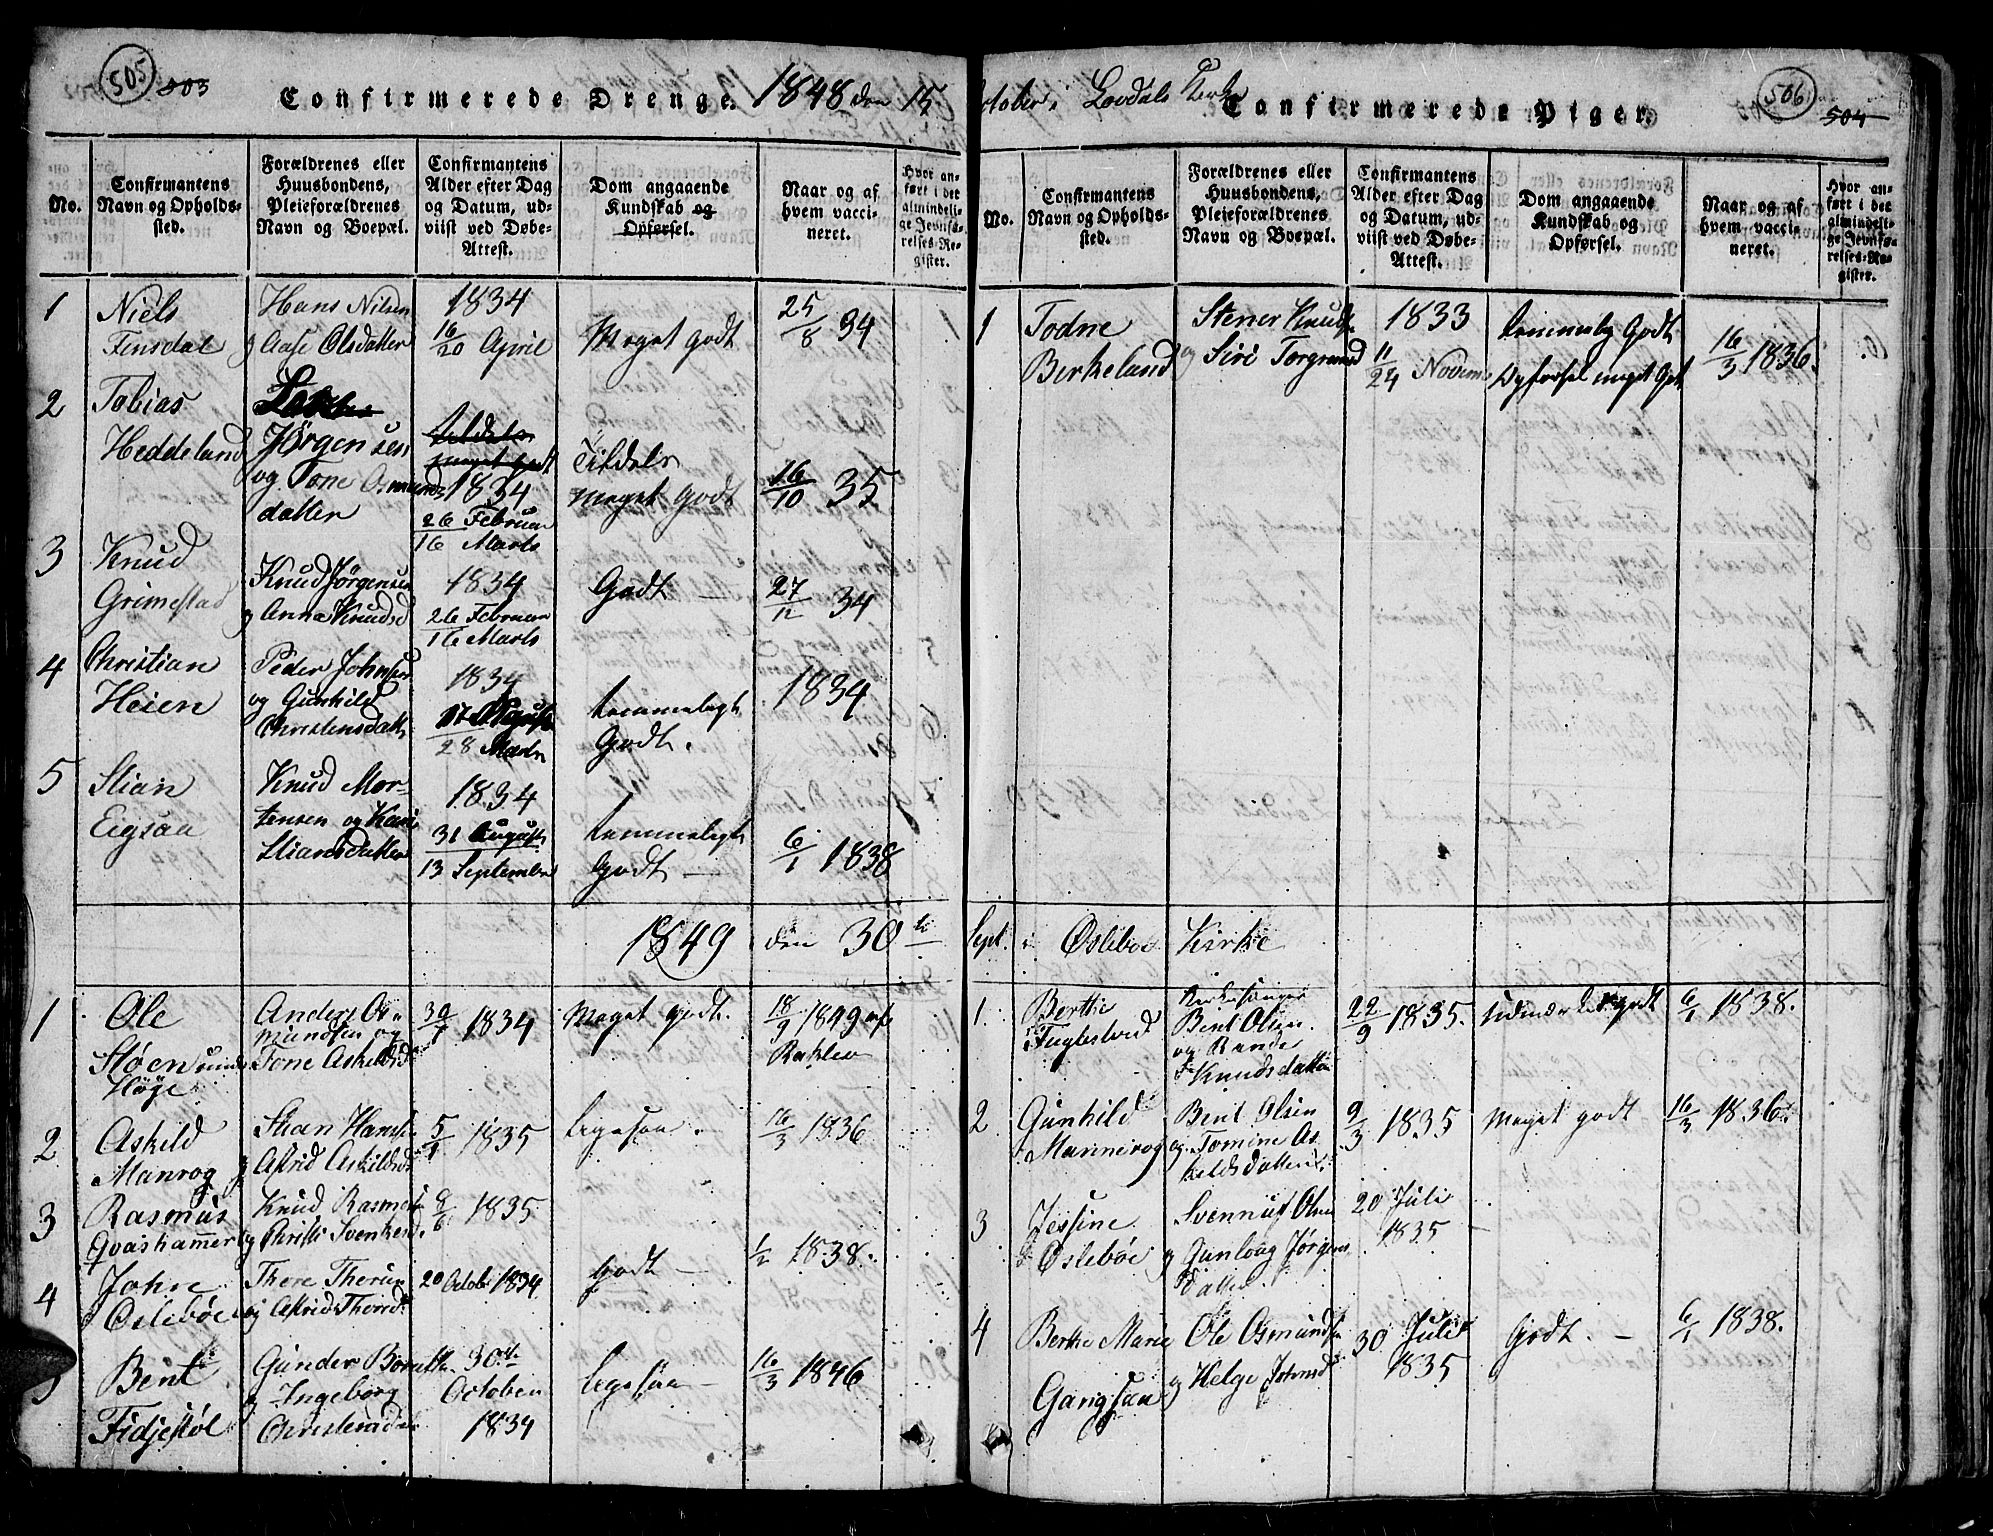 505 503
Confirmerede Drenge. 1848 den 15
No.
Confirmantens Navn og Opholds-sted.
Forældrenes eller Huusbondens, Pleieforældrenes Navn og Boepæl.
Confirmantens Alder efter Dag og Datum, ud-viist ved Døbe-Attest.
Dom angaaende Kundskab og Opførsel.
Naar og af hvem vacci-neret.
Hvor an-ført i det almindeli-ge Jevnfø-relses-Re-gister.
1
Niels
Finsdal
Hans Nilsen
og Aase Olsdatter
1834
16/20 April
Meget godt
25/8 34
2
Tobias
Heddeland
Jørgensen
og Tone Osmunds
datter
Tildels
meget godt
1834
26 Februar
16 Marts
Tildels
meget godt
16/10 35
3
Knud
Grimestad
Knud Jørgensen
og Anna Knudsd
1834
26 Februar
16 Marts
Godt —
27/12 34
4
Christian
Heien
Peder Johnsen
og Gunhild
Christensdatt
1834
28 Marts
temmeligt
Godt.
1834
5
Stian
Eigsaa
Knud Mor-
tensen og Kari
Stiansdatter
1834
31 August
13 September
temmeligt
Godt —
6/1 1838
1849 den 30te
1
Ole
Sløen
Høye
Anders Os-
mundsen og
Tone Askildsd
30/7 1834
Meget godt.
18/9 1849 af
2
Askild
Manrog
Stian Hansen
og Astrid Askildsd
5/1 1835
ligesaa.
16/3 1836
3
Rasmus
Qvashammer
Knud Rasmus
og Christi Svenkesd.
9/6 1835
4
John
Oslebøe
There
og Astrid Thorsd
20 October 1834
godt —
1/2 1838.
5
Bent
Fidjestøl
Gunder
og Ingeborg
Christensdat
30te
October
1834
ligesaa —
16/3 1846
October i Lovdals Kirke
Confirmerede Piger.
506 504
No.
Confirmantens Navn og Opholds-sted.
Forældrenes eller Huusbondens, Pleieforældrenes Navn og Boepæl.
Confirmantens Alder efter Dag og Datum, ud-viist ved Døbe-Attest.
Dom angaaende Kundskab og Opførsel.
Naar og af hvem vacci-neret.
Hvor an-ført i det almindeli-ge Jevnfø-relses-Re-gister.
1
Todne
Birkeland
Stener Knuds
og Siri Torgrimsd
1833
11/24 Novem
temmelig Godt
Opførsel meget Godt
16/3 1836.
Sept. i Oslebøe Kirke
1.
Berthe
Fuglestvedt
Kirkesanger
Bent Olsen
og Rande
Knudsdatter
22/9 1835.
udmærket godt
6/1 1838.
2
Gunhild
Mannerog
Bent Olsen
og Tomine As-
keldsdatter
9/3 1835
Meget godt
16/3 1836.
3
Jessine
Oslebøe
Svennus Olsen
og Gunlaug Jørgens
datter
20 Juli
1835 —
4
Berthe Marie
Gangsaa
Ole Osmundsen
og Helge Johnsd
30 Juli
1835
Godt. —
6/1 1838.